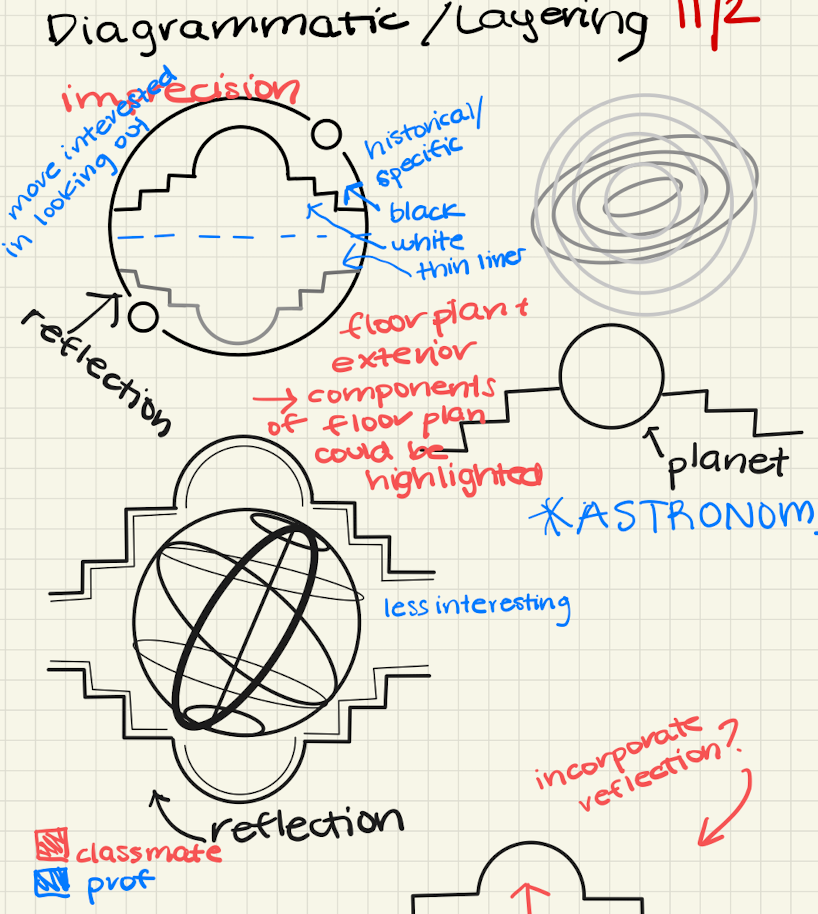 Diagrammatic / Layering 11/2
imprecision
more interested
in looking out
historical/
specific
black
white
thin lines
reflection
floor plan +
exterior
→ components
of floor plan
could be
highlighted
planet
*ASTRONOM
less interesting
incorporate
reflection?
reflection
classmate
prof